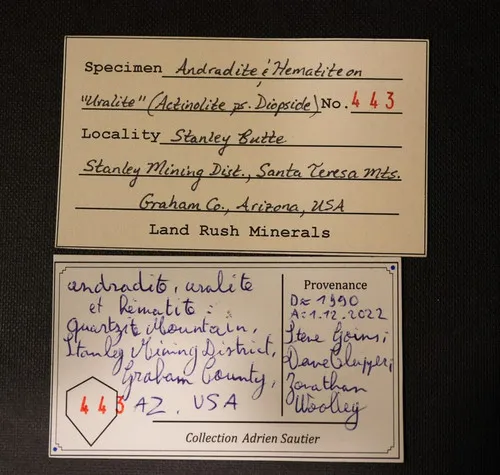 Specimen Andradite & Hematite on
"Uralite" (Actinolite ps. Diopside) No. 443
Locality Stanley Butte
Stanley Mining Dist., Santa Teresa Mts.
Graham Co., Arizona, USA
Land Rush Minerals
andradite, uralite
et hématite :
Quartzite Mountain,
Stanley Mining District,
Graham County,
AZ, USA
443
Provenance
D≈ 1990
A: 1.12.2022
Steve Goins;
Dave Clupper;
Jonathan
Woolley
Collection Adrien Sautier